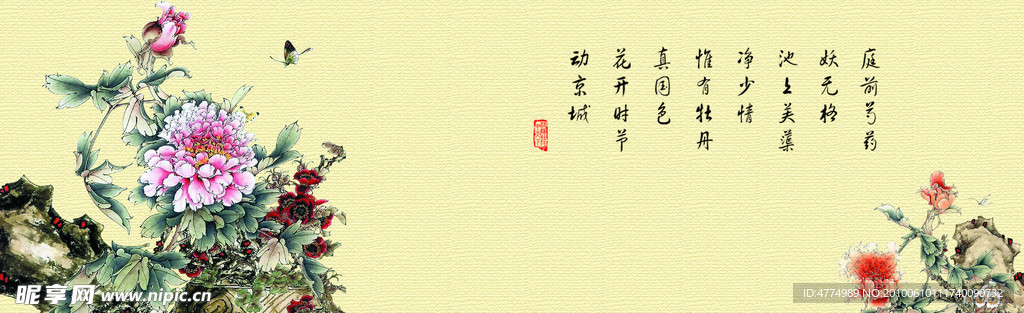 庭前芍药
妖无格
池上美蕖
净少情
惟有牡丹
真国色
花开时节
动京城
昵享网 www.nipic.cn
ID:4774989 NO:20100610111740090732